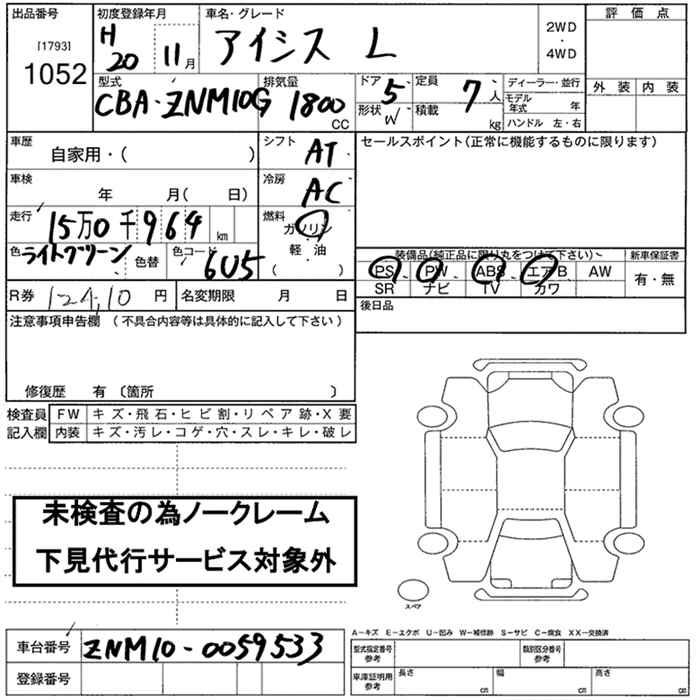 出品番号 初度登録年月 車名・グレード 評価点
[1793] H 2WD
1052 20 11月 アイシス L ・
4WD
型式 排気量 ドア 5 定員 7人 ディーラー・並行 外装 内装
CBA・ZNM10G 1800 CC 形状 W 積載 kg モデル年式 年
ハンドル 左・右
車歴 自家用・( ) シフト AT セールスポイント(正常に機能するものに限ります)
車検 年 月( 日) 冷房 AC
走行 15万0千964 km 燃料 ガソリン
色 ライトグリーン 色替 色コード 6U5 軽・油
( )
装備品(純正品に限り丸をつけて下さい) 新車保証書
PS PW ABS エアB AW 有・無
SR ナビ TV カワ
R券 円 名変期限 月 日 後日品
注意事項申告欄 (不具合内容等は具体的に記入して下さい)
修復歴 有 〔箇所 〕
検査員 FW キズ・飛石・ヒビ割・リペア跡・X要
記入欄 内装 キズ・汚レ・コゲ・穴・スレ・キレ・破レ
未検査の為ノークレーム
下見代行サービス対象外
スペア
A-キズ E-エクボ U-凹み W-補修跡 S-サビ C-腐食 XX-交換済
車台番号 ZNM10-0059533 型式指定番号 参考 類別区分番号 参考
登録番号 車庫証明用 参考 長さ cm 幅 cm 高さ cm